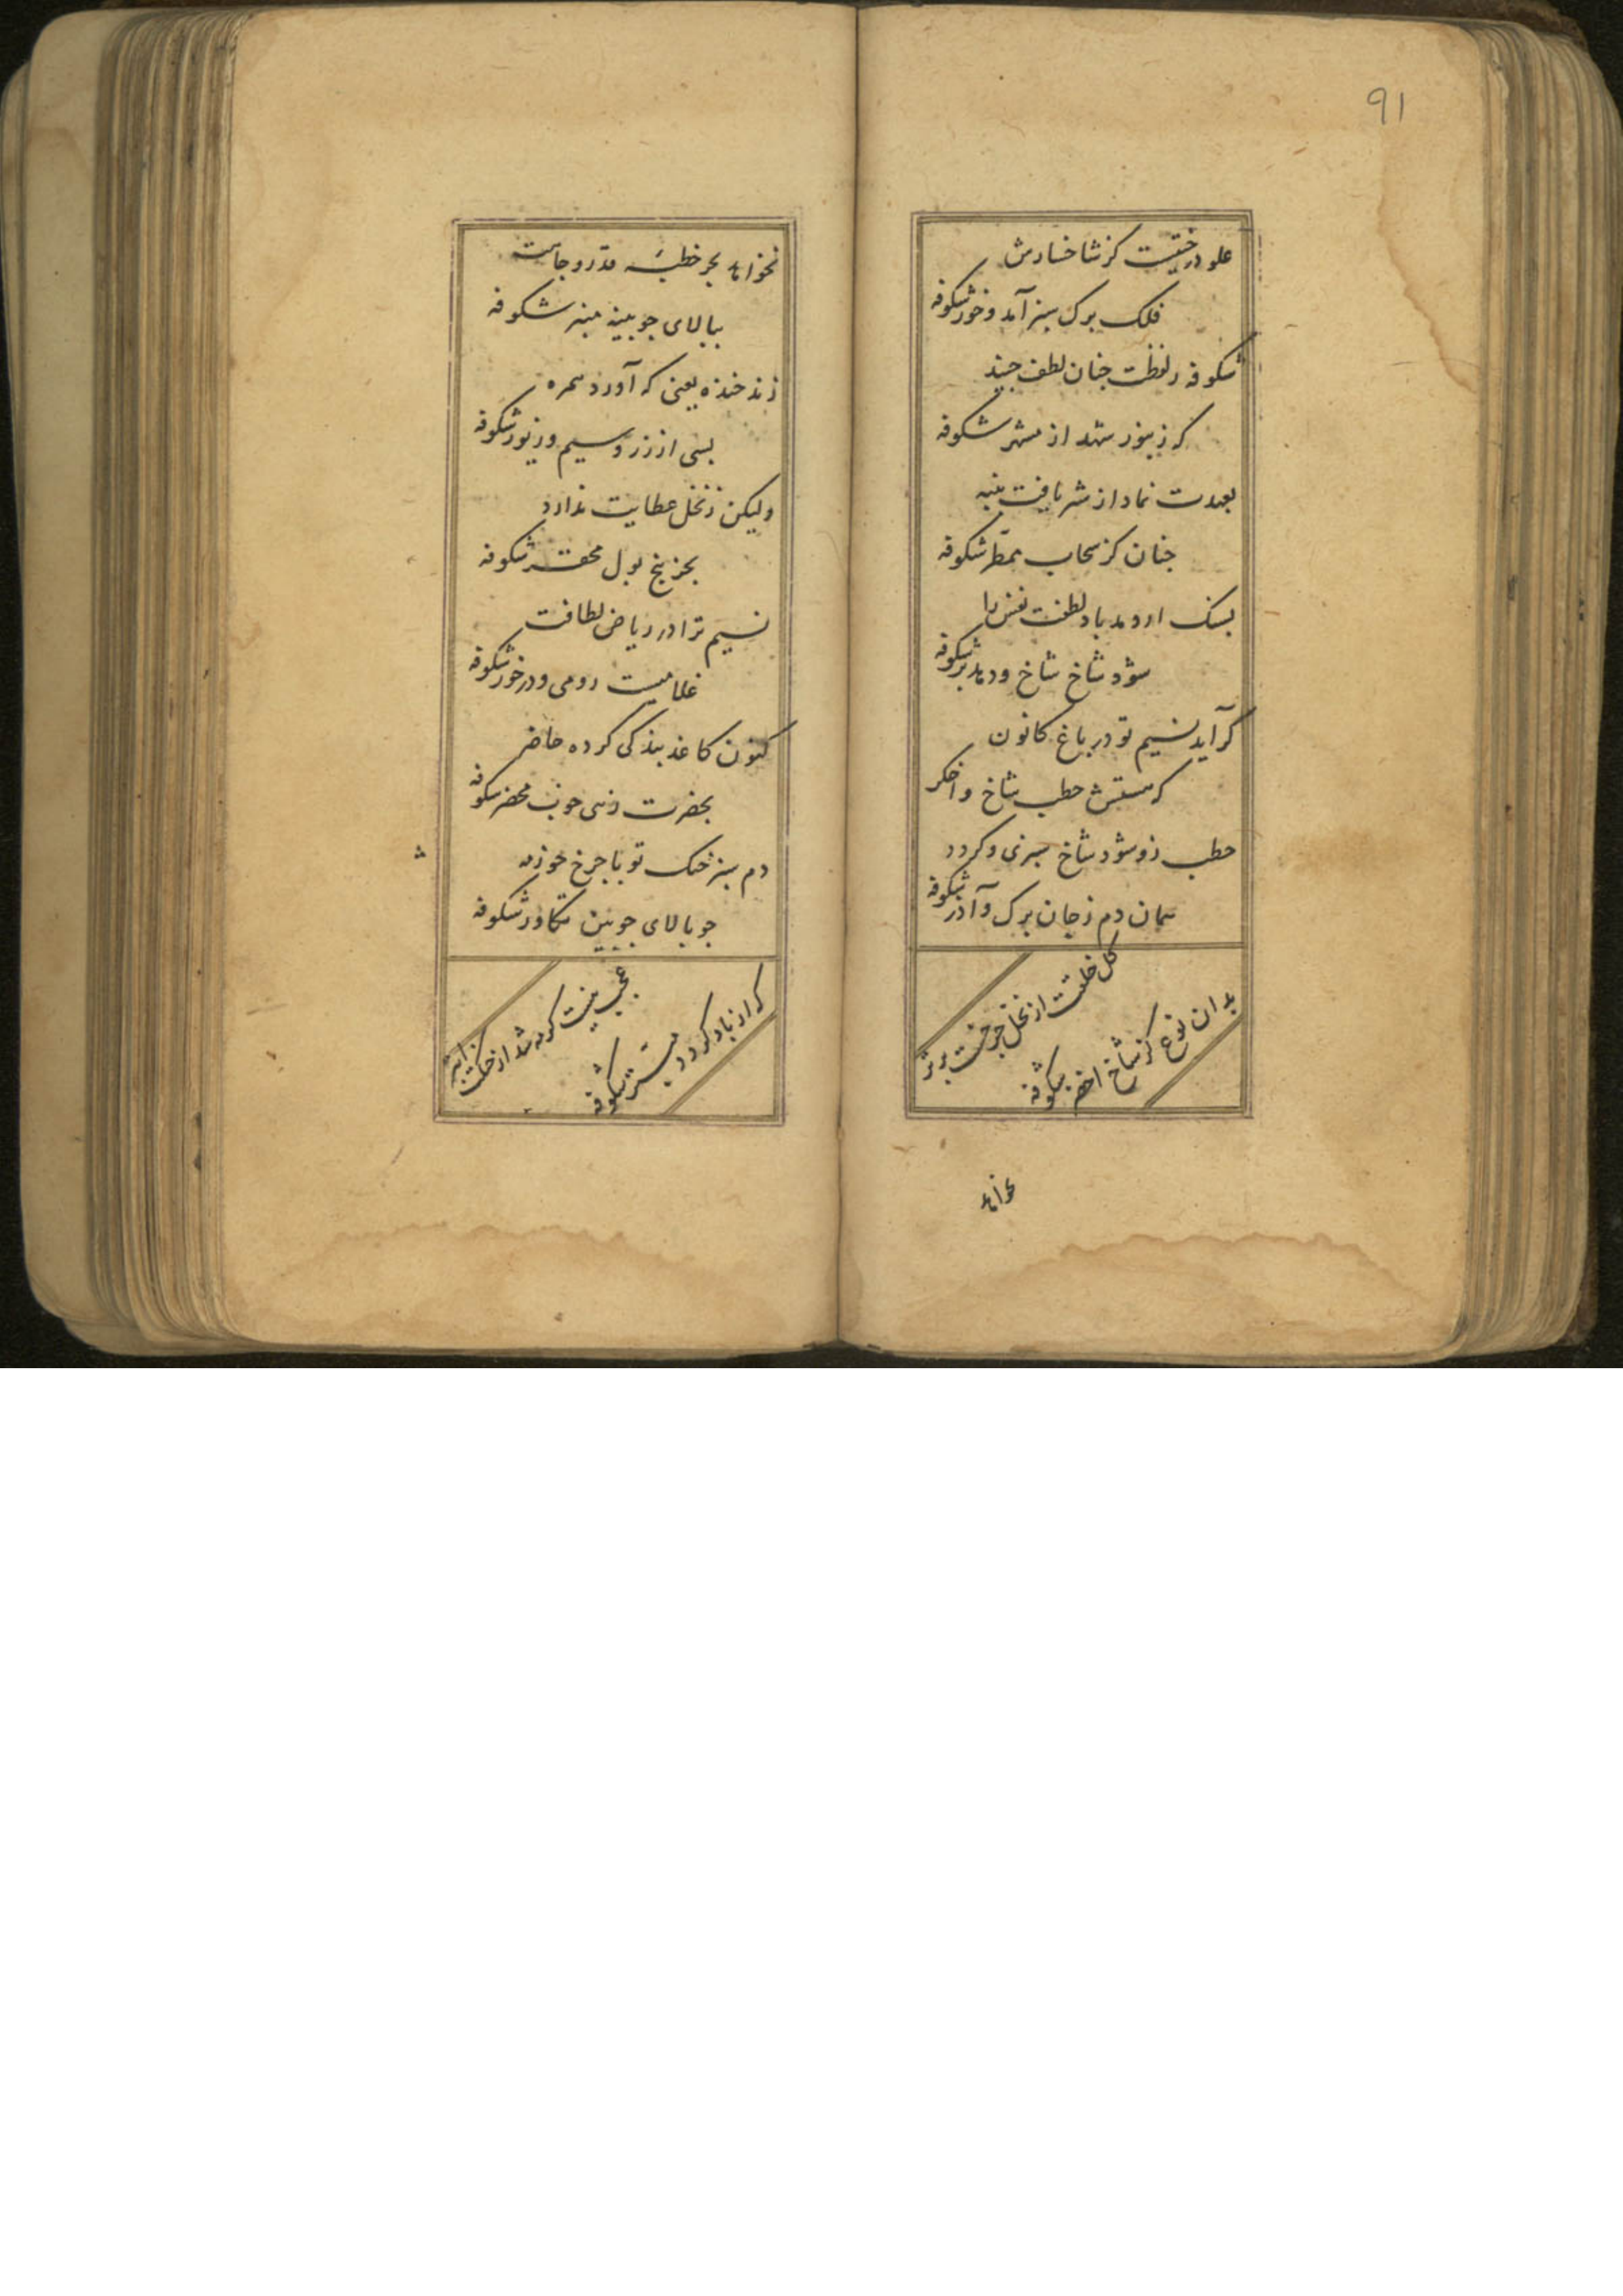 91
علو درختیست کز شاخسارش
فلک برک سبز آمد و خور شکوفه
شکوفه ز لفظت چنان لطف چیند
که زنبور شهد از شکوفه
بعهدت نماد از شر یافت پنبه
چنان کز سحاب ممطر شکوفه
بسنک ار دمد باد لطفت نفس را
شود شاخ شاخ و دماند بر شکوفه
کر آید نسیم تو در باغ کانون
که هستش حطب شاخ و اخکر
حطب زو شود شاخ سبزی و کردد
همان دم زجان برک و آذر شکوفه
کل خلقت از نخل چرخست برتر
بدان نوع کز شاخ اخضر شکوفه
نخواند
نخواند بجز خطبه قدر و جاهت
ببالای چوبینه منبر شکوفه
زند خنده یعنی که آورد همره
بسی از زر و سیم و زیور شکوفه
ولیکن ز نخل عطایت ندارد
بجز پنج پول محقر شکوفه
نسیم ترا در ریاض لطافت
غلامیست رومی و در خور شکوفه
کنون کاغذ بندکی کرده حاضر
بحضرت چون محضر شکوفه
دم سبز خنک تو با چرخ خورده
چو بالای چوبین تکاور شکوفه
عجب نیست کره شد از خنکت
که از باد کردد شکوفه